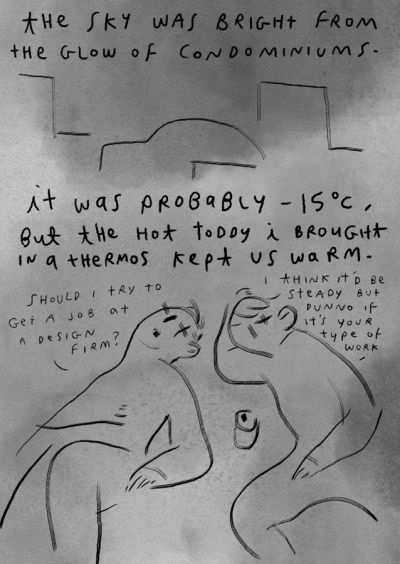 tHe SKY WAS BRIGHT FROM
tHe GLOW OF CONDOMINIUMS.
it WAS PROBABLY -15°C,
But tHe HOt toDDy i BROUGHt
IN a tHERMOS KePt US WaRM.
SHOULD I tRY tO
Get A JOB at
A DESIGN
FIRM?
I tHINK It'D BE
SteADY BUt
DUNNO IF
It'S YOUR
tYPE OF
WORK